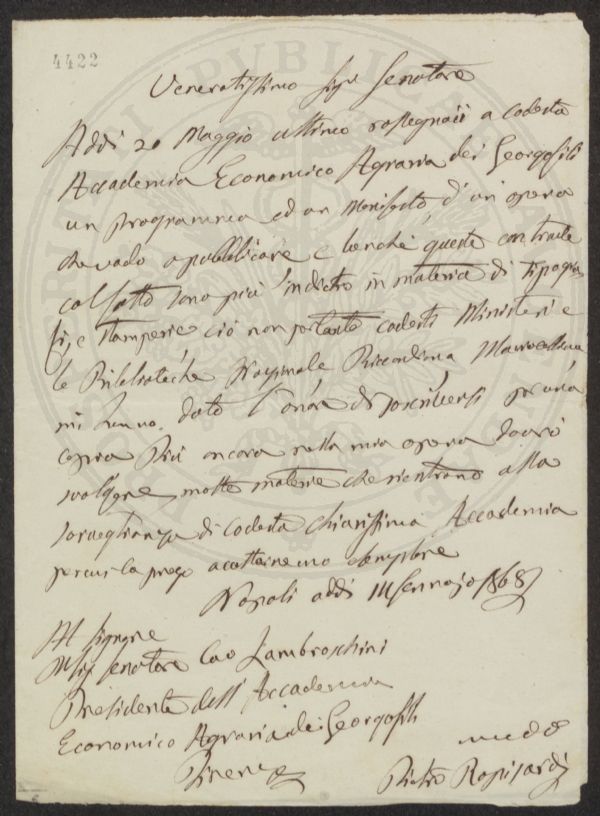 4422
Veneratissimo Sigr Senatore
Addi 20 Maggio ultimo rassegnai a codesta
Accademia Economico Agraria dei Georgofili
un programma ed un Manifesto, d'un opera
che vado a pubblicare e benchè queste contrade
col fatto sono più indietro in materia di tipogra
fie, e stamperie ciò non pertanto codesti Ministeri e
le Biblioteche Nazionale Riccardiana Marucelliana
mi hanno dato l'onore di soscriversi per una
copia Più ancora nella mia opera dovrò
svolgere molte materie che rientrano alla
sorveglianza di codesta chiarissima Accademia
percui la prego accettarne uno esemplare
Napoli addi 14 Gennajo 1868
Al Signore
Sig Senatore Cav Lambroschini
Presidente dell'Accademia
Economico Agraria dei Georgofili
Firenze
Pietro Rapisardi